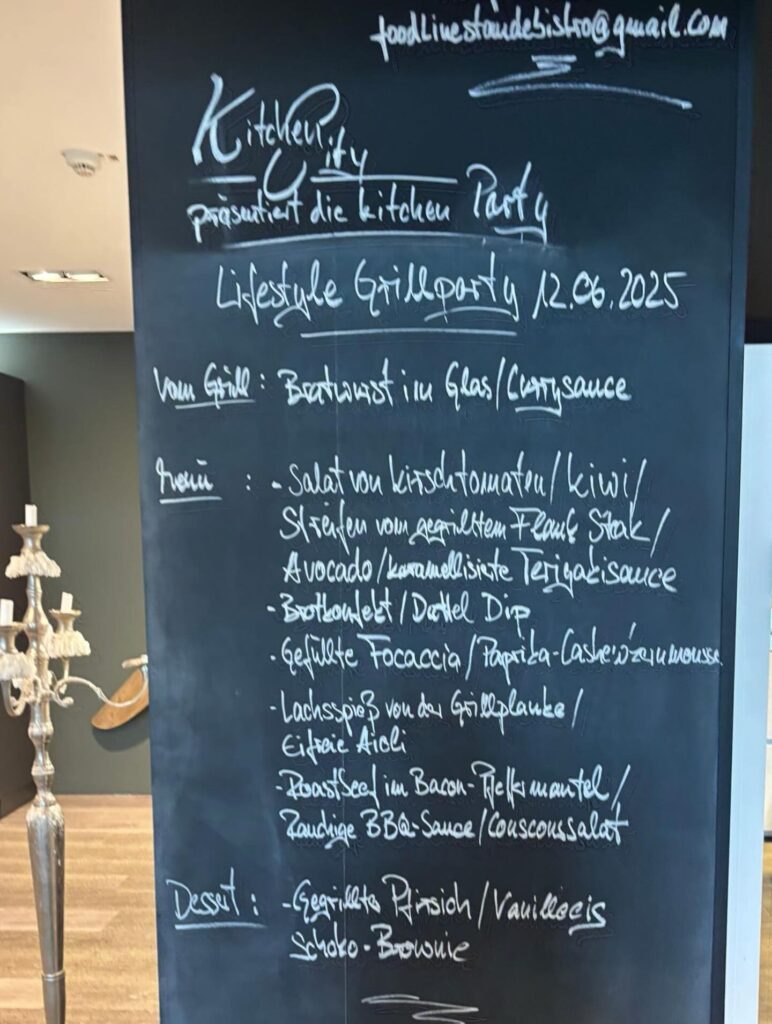 foodlinestandebistro@gmail.com
Kitchen City
präsentiert die kitchen Party
Lifestyle Grillparty 12.06.2025
Vom Grill: Bratwurst im Glas/Currysauce
Menü : - Salat von Kirschtomaten/Kiwi/
Streifen vom gegrilltem Flank Steak/
Avocado/karamellisierte Teriyakisauce
- Brotkonfekt/Dattel Dip
- Gefüllte Focaccia/Paprika-Cashew
- Lachsspieß von der Grillplanke/
Eifreie Aioli
- Roastbeef im Bacon-Pfeffermantel/
Rauchige BBQ-Sauce/Couscoussalat
Dessert: - Gegrillter Pfirsich/Vanilleeis
Schoko-Brownie